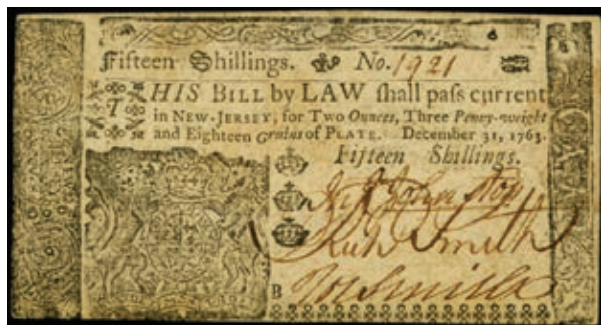 Fifteen Shillings. No. 1921
THIS BILL by LAW ſhall paſs current
in NEW-JERSEY, for Two Ounces, Three Penny-weight
and Eighteen Grains of PLATE. December 31, 1763.
Fifteen Shillings.
Johnston
Smith
B Jos Smith